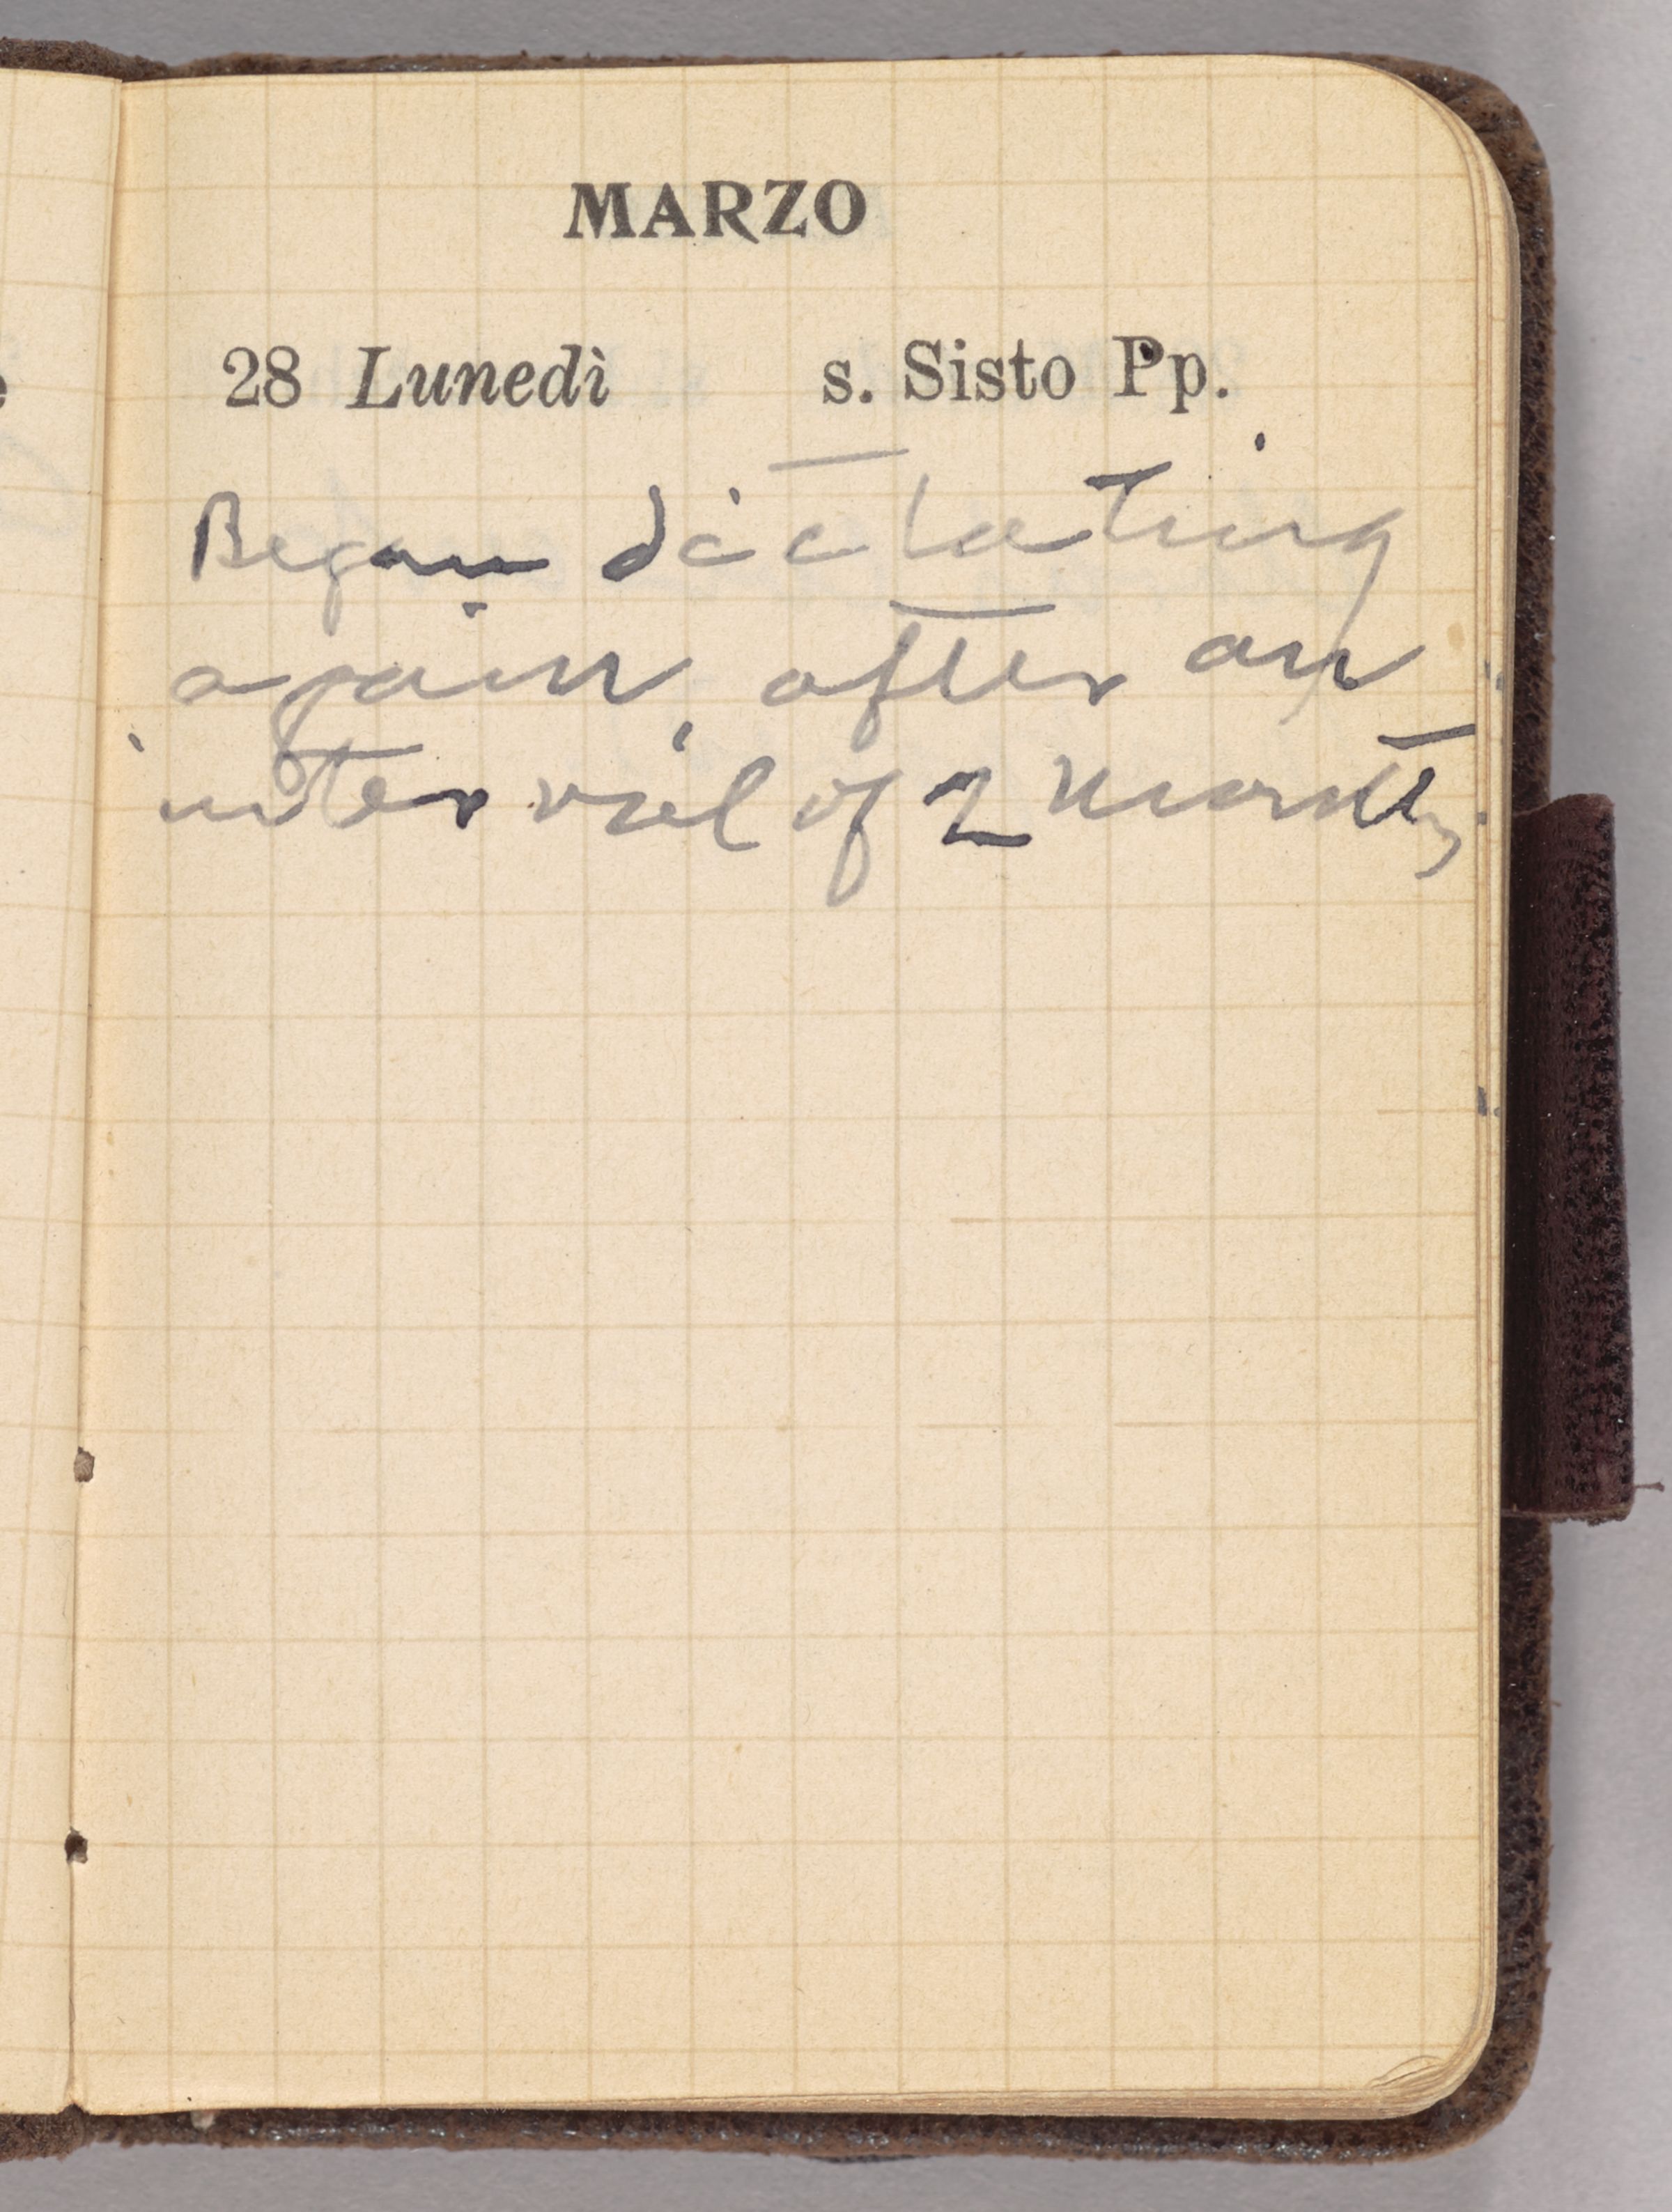 MARZO
28 Lunedì s. Sisto Pp.
Began dictating
again, after an
interval of 2 months